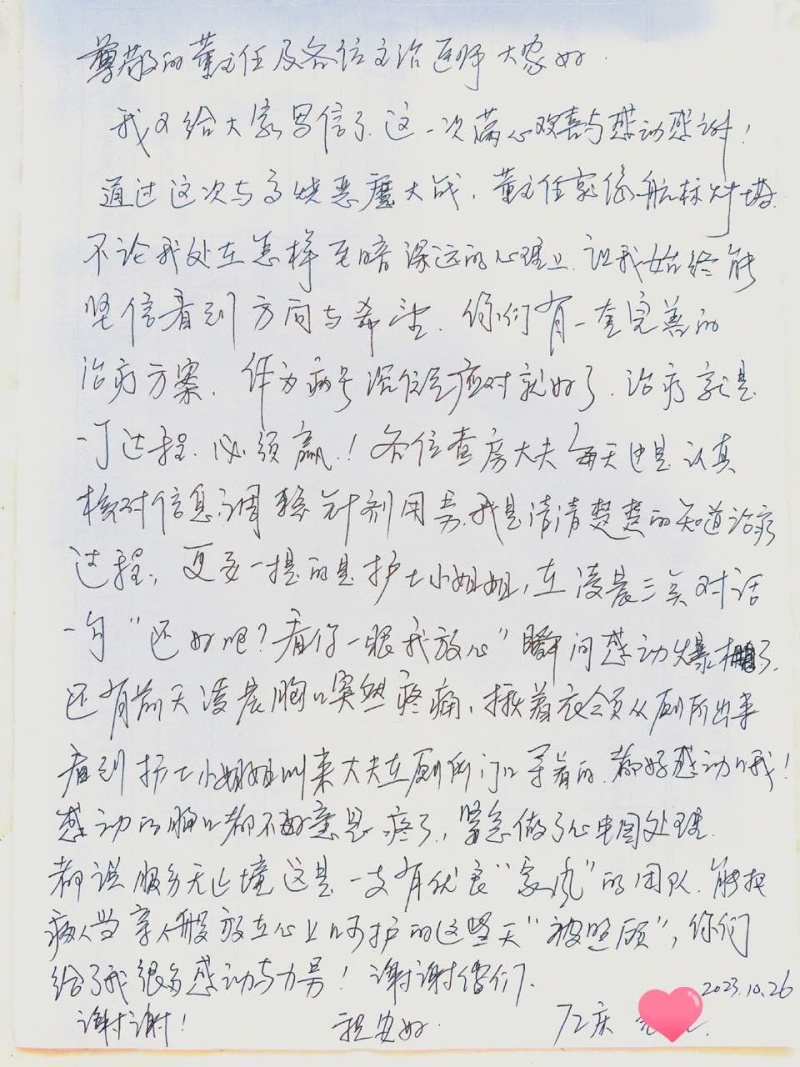 尊敬的董主任及各位主治医师大家好.
我又给大家写信了.这一次满心欢喜与感动感谢！
通过这次与高烧恶魔大战，董主任就像航标灯塔.
不论我处在怎样至暗深远的心理上.让我始终能
坚信看到方向与希望.你们有一套完善的
治疗方案，作为病号深信且应对就好了.治疗就是
一个过程.必须赢！各位查房大夫每天也是认真
核对信息调整针剂用量.我是清清楚楚的知道治疗
过程，更要一提的是护士小姐姐，在凌晨三点对话
一句“还好吧？看你一眼我放心”瞬间感动爆棚了.
还有前天凌晨胸口突然疼痛，揪着衣领从厕所出来
看到护士小姐姐叫来大夫在厕所门口等着的.都好感动哦！
感动的胸口都不好意思疼了，紧急做了心电图处理.
都说服务无止境这是一支有优良“家风”的团队.能把
病人当亲人般放在心上呵护的这些天“被照顾”，你们
给了我很多感动与力量！谢谢你们.
2023.10.26
谢谢！ 祝安好.